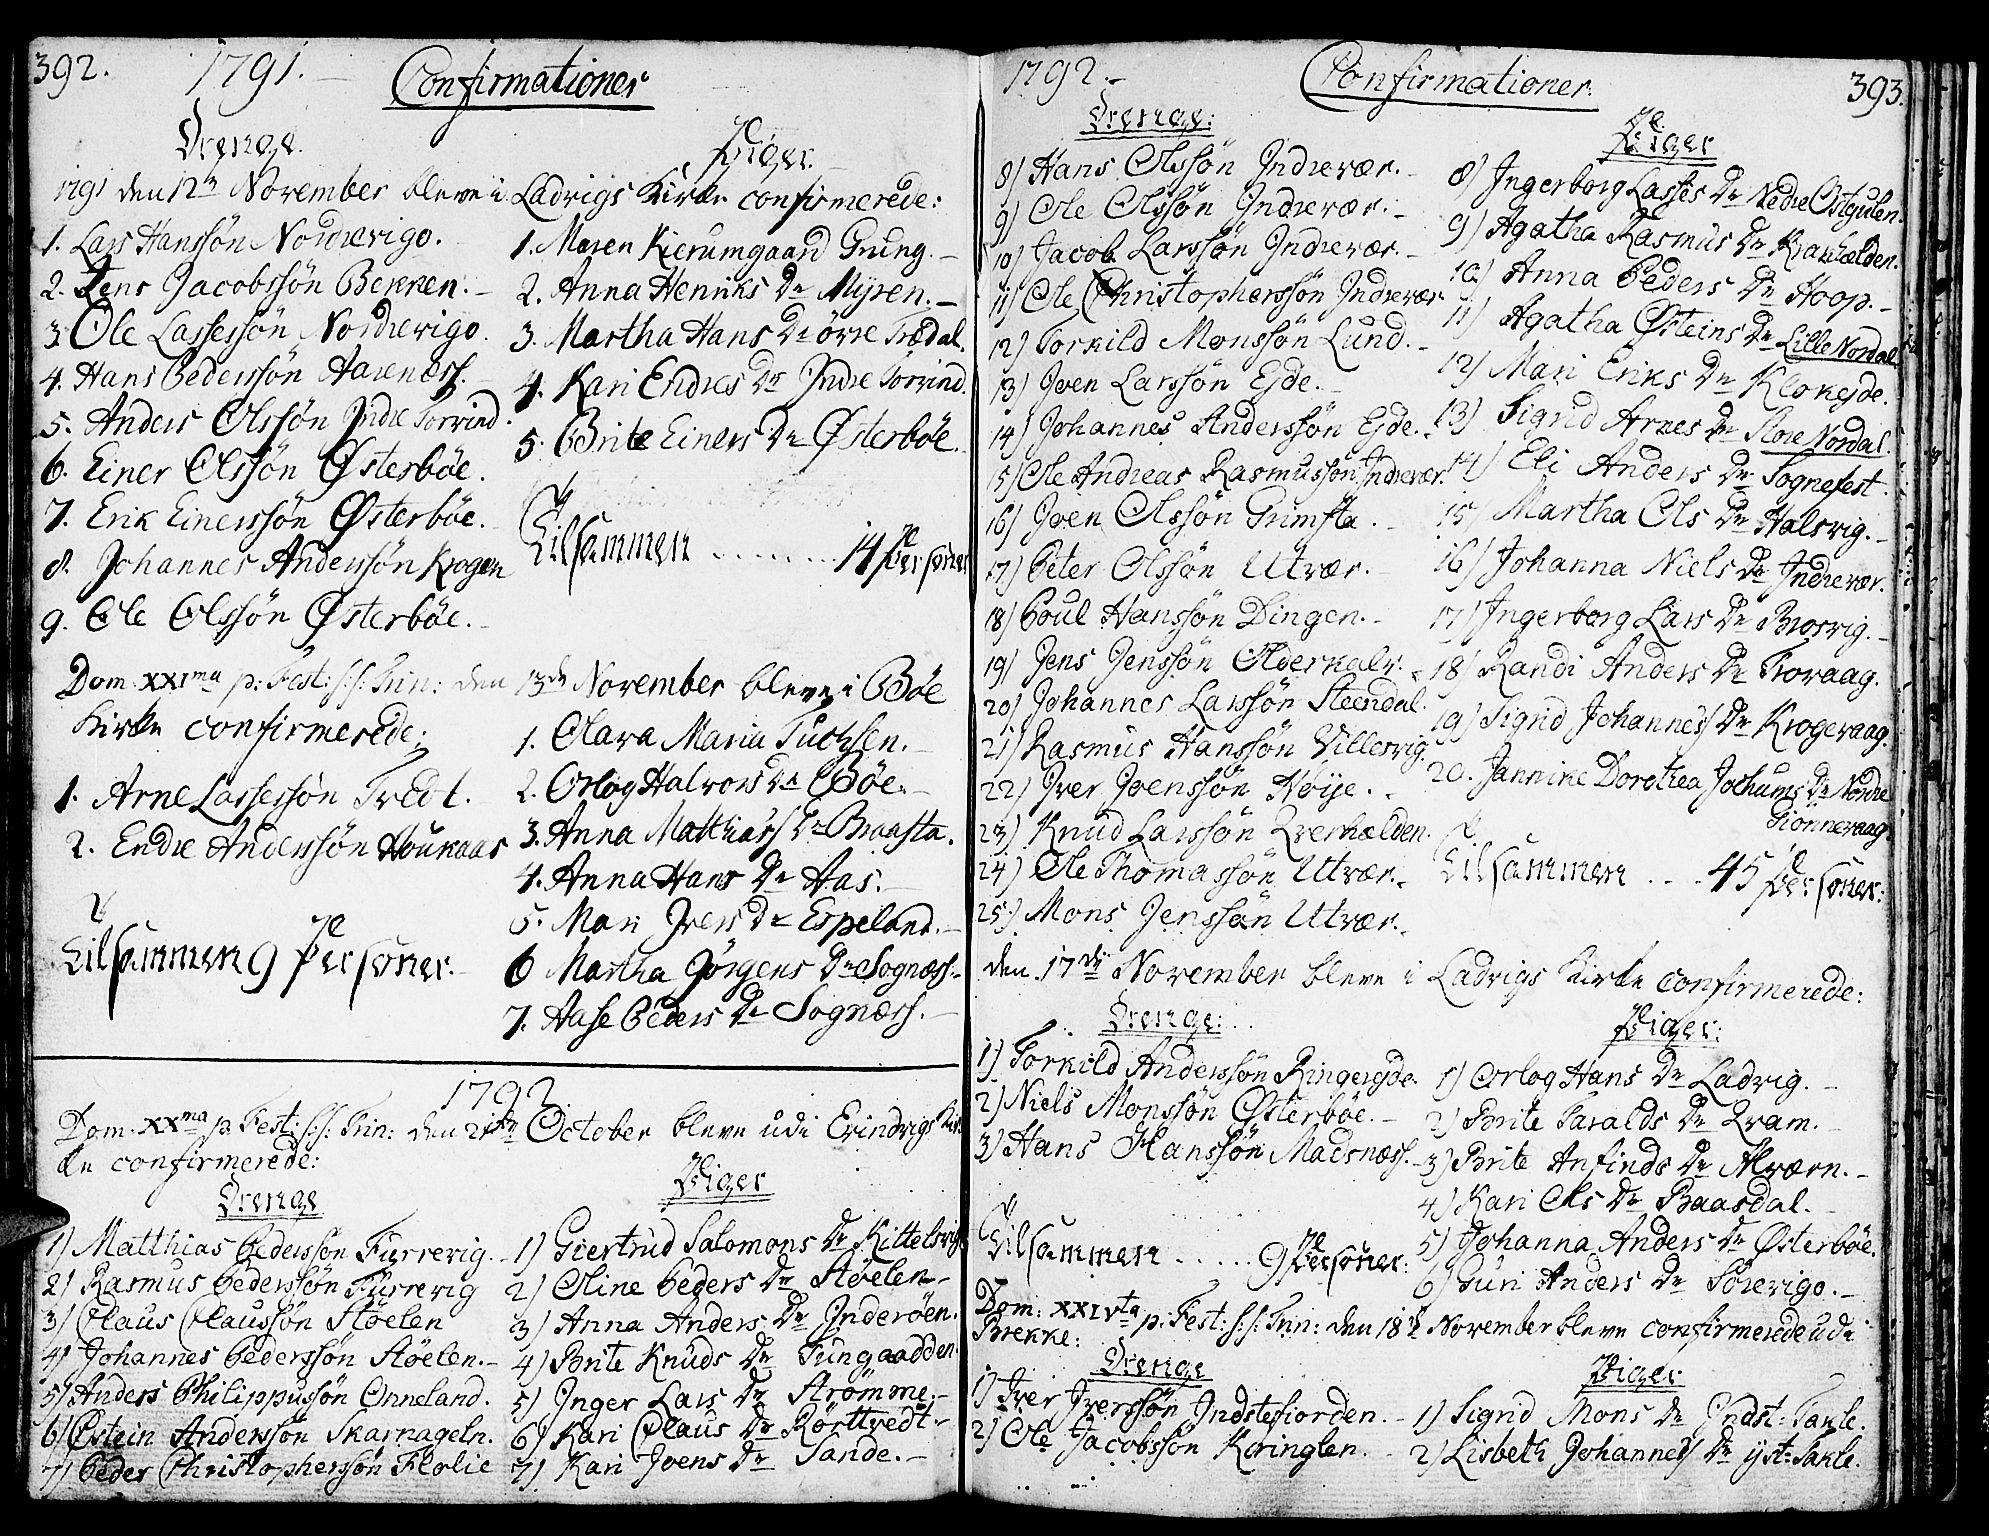 392. 1791. Confirmationer
Drenge. Piger.
1791 den 12te November bleve i Ladvigs Kirke confirmerede:
1. Lars Hanssøn Nordrevigo.
2. Jens Jacobssøn Bekken.
3 Ole Lassessøn Nordrevigo.
4. Hans Pederssøn Aarenæss.
5. Anders Olssøn Indre Torvind.
6. Einer Olssøn Østerbøe.
7. Erik Einerssøn Østerbøe.
8. Johannes Anderssøn Krogen
9. Ole Olssøn Østerbøe.
1. Maren Kierumgaard Grung.
2. Anna Henriks Dr Myren.
3. Martha Hans Dr övre Trædal.
4. Kari Endres Dr Indre Torvind.
5. Brite Einers Dr Østerbøe
Tilsammen ....... 14 Personer
Dom. XXIma p: Fest: S: S: Trin: den 13de November bleve i Bøe
Kirke confirmerede:
1. Arne Lassessøn Tredt.
2. Endre Anderssøn Houkaas
Tilsammen 9 Personer.
1. Olava Maria Tuchsen.
2. Orlog Halvors Dr Bøe.
3. Anna Matthias Dr Braasta.
4. Anna Hans Dr Aas.
5. Mari Ivers Dr Espeland.
6 Martha Jørgens Dr Sognæss.
7. Aase Peders Dr Sognæss.
1792.
Dom. XXma p. Fest: S: S: Trin: den 21de October bleve udi Evindvigs Kir-
ke confirmerede:
Drenge
1) Matthias Pederssøn Furrevig.
2) Rasmus Pederssøn Furrevig
3) Claus Claussøn Støelen
4) Johannes Pederssøn Støelen.
5) Anders Philippussøn Onneland.
6) Østein Anderssøn Skarnageln.
7) Peder Christopherssøn Flolie
Piger
1) Giertrud Salomons Dr Kittelsvig.
2) Oline Peders Dr Støelen
3) Anna Anders Dr Inderøen.
4) Brite Knuds Dr Tungaadden.
5) Inger Lars Dr Strømme.
6) Kari Claus Dr Rörttvedt
7) Kari Joens Dr Sande.
1792. Confirmationer. 393.
Drenge:
8) Hans Olssøn Indrevær.
9) Ole Olssøn Indrevær.
10) Jacob Larssøn Indrevær.
11) Ole Christopherssøn Indrevær
12) Torkild Monssøn Lund.
13) Joen Larssøn Ejde.
14) Johannes Anderssøn Ejde.
15) Ole Andreas Rasmussøn Indrevær.
16) Joen Olssøn Grimsta.
17) Peter Olssøn Utvær.
18) Poul Hanssøn Dingen.
19) Jens Jenssøn Olderkalv.
20) Johannes Larssøn Steendal.
21) Rasmus Hanssøn Villesvig.
22) Iver Joenssøn Høije.
23) Knud Larssøn Qverhælden.
24) Ole Thomassøn Utvær.
25) Mons Jenssøn Utvær.
Piger
8) Ingerborg Lasses Dr Nedre Ostgulen.
9) Agatha Rasmus Dr Krakhælden.
10) Anna Peders Dr Hoop.
11) Agatha Østeins Dr Lille Nordal
12) Mari Eriks Dr Klokejde.
13) Sigrid Arnes Dr Store Nordal.
14) Eli Anders Dr Sognefest.
15) Martha Ols Dr Halsvig.
16) Johanna Niels Dr Indrevær.
17) Ingerborg Lars Dr Brosvig.
18) Randi Anders Dr Troraag.
19) Sigrid Johannes Dr Krogeraag.
20. Jannike Dorothea Jochums Dr Nordre
Gionneraag.
Tilsammen .... 45 Personer.
den 17de November bleve i Ladvigs Kirke confirmerede:
Drenge:
1) Torkild Anderssøn Ringereyde.
2) Niels Monssøn Østerbøe.
3) Hans Hanssøn Madsnæss.
Tilsammen ..... 9 Personer.
Piger:
1) Orlog Hans Dr Ladvig.
2) Brite Haralds Dr Qvam.
3) Brite Anfinds Dr Akværn.
4) Kari Ols Dr Baasdal.
5) Johanna Anders Dr Østerbøe.
6) Guri Anders Dr Sørevigo.
Dom: XXIVta p: Fest: S: S: Trin: den 18de November bleve confirmerede udi
Brekke:
Drenge
1) Iver Iverssøn Indstefiorden.
2) Ole Jacobssøn Kringlen.
Piger
1) Sigrid Mons Dr Indst: Takle.
2) Lisbeth Johannes Dr yst: Takle.